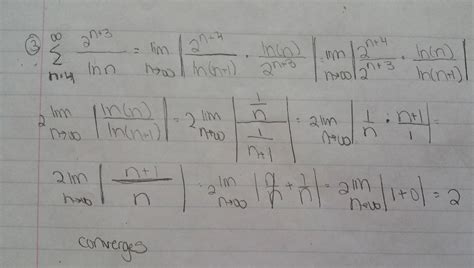 ③ ∞ Σ n=4 2^{n+3} / ln n = lim n→∞ | 2^{n+4} / ln(n+1) · ln(n) / 2^{n+3} | = lim n→∞ | 2^{n+4} / 2^{n+3} · ln(n) / ln(n+1) |
2 lim n→∞ | ln(n) / ln(n+1) | = 2 lim n→∞ | (1/n) / (1/(n+1)) | = 2 lim n→∞ | 1/n · (n+1)/1 | =
2 lim n→∞ | (n+1) / n | = 2 lim n→∞ | n/n + 1/n | = 2 lim n→∞ | 1+0 | = 2
converges